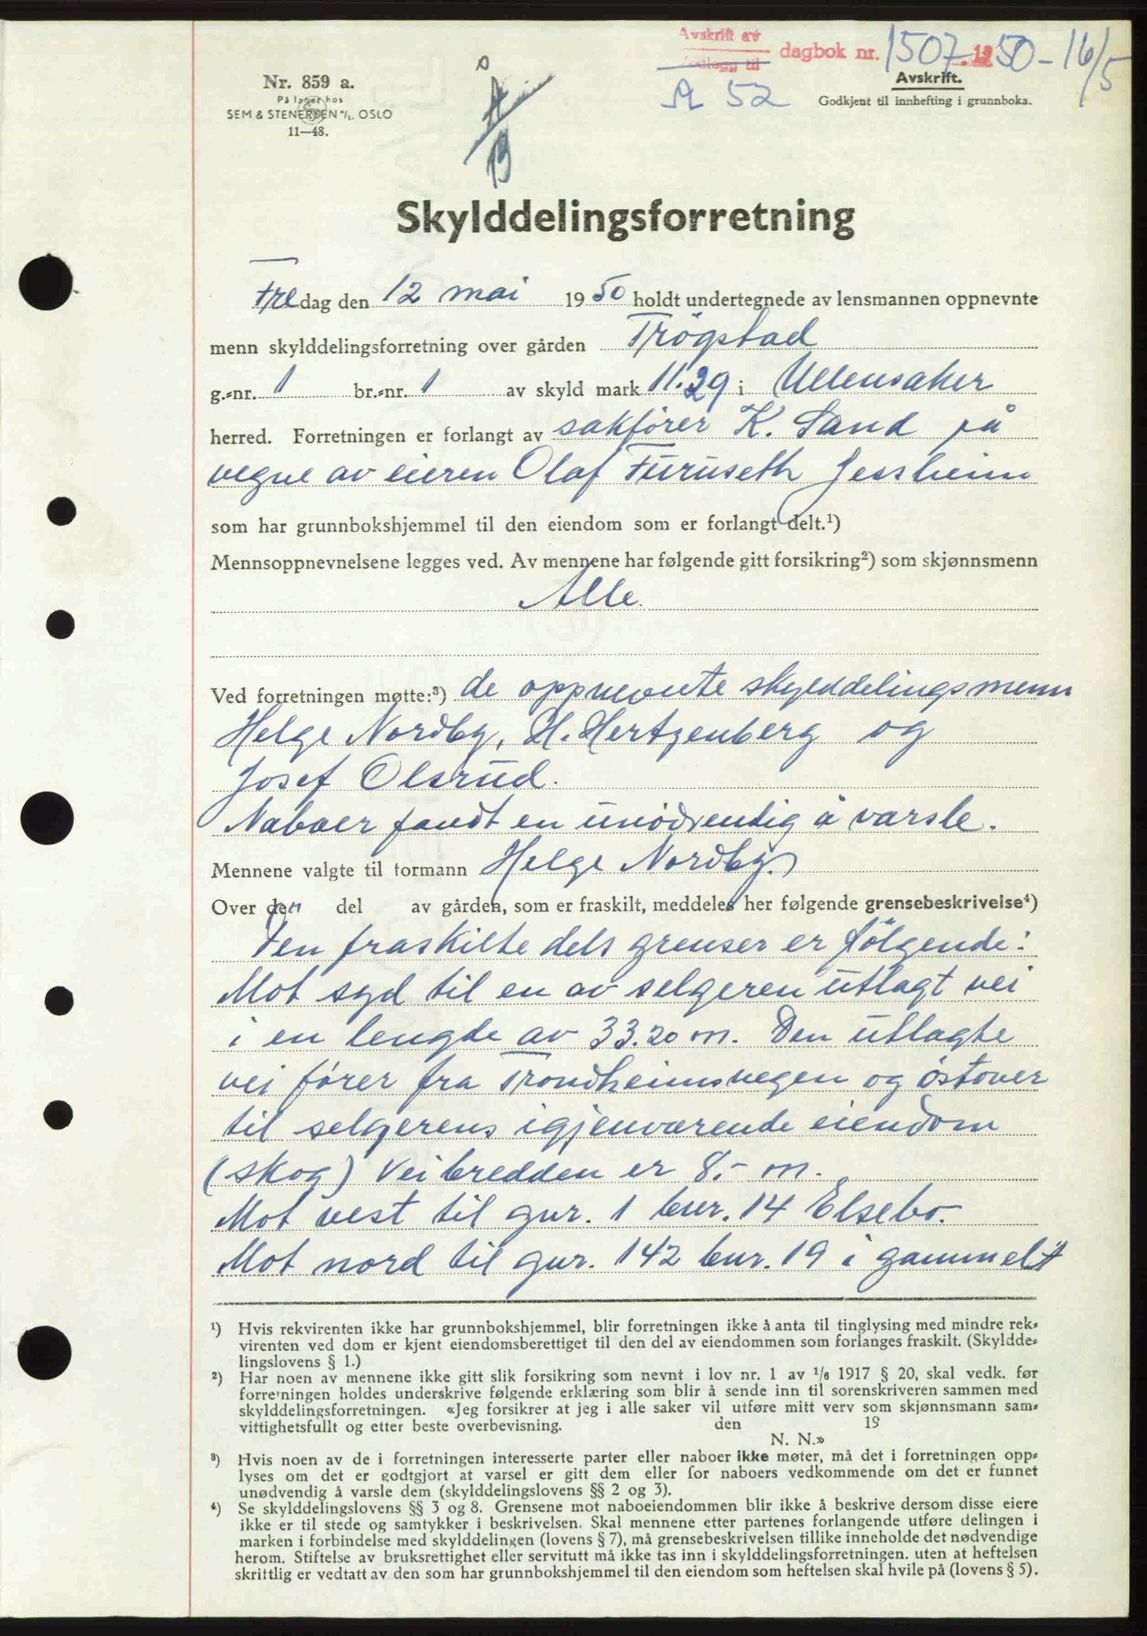 Avskrift av
vedlegg til dagbok nr. 1507.1950-16/5
A 52
Avskrift.
Godkjent til innhefting i grunnboka.
Nr. 859 a.
På lager hos
SEM & STENERSEN A/S. OSLO
11—48.
Skylddelingsforretning
Fredag den 12 mai 1950 holdt undertegnede av lensmannen oppnevnte
menn skylddelingsforretning over gården Trøgstad
g.-nr. 1 br.-nr. 1 av skyld mark 11.29 i Ullensaker
herred. Forretningen er forlangt av sakfører K. Sand på
vegne av eieren Olaf Furuseth Jessheim
som har grunnbokshjemmel til den eiendom som er forlangt delt.¹)
Mennsoppnevnelsene legges ved. Av mennene har følgende gitt forsikring²) som skjønnsmenn
Alle.
Ved forretningen møtte:³) de oppnevnte skylddelingsmenn
Helge Nordby, H. Hertzenberg og
Josef Olsrud.
Naboer fandt en unødvendig å varsle.
Mennene valgte til formann Helge Nordby.
Over den del av gården, som er fraskilt, meddeles her følgende grensebeskrivelse⁴)
Den fraskilte dels grenser er følgende:
Mot syd til en av selgeren utlagt vei
i en lengde av 33.20 m. Den utlagte
vei fører fra Trondheimsvegen og østover
til selgerens igjenværende eiendom
(skog) Veibredden er 8.- m.
Mot vest til gnr. 1 bnr. 14 Elsebo.
Mot nord til gnr. 142 bnr. 19 i gammelt
¹) Hvis rekvirenten ikke har grunnbokshjemmel, blir forretningen ikke å anta til tinglysing med mindre rek-
virenten ved dom er kjent eiendomsberettiget til den del av eiendommen som forlanges fraskilt. (Skyldde-
lingslovens § 1.)
²) Har noen av mennene ikke gitt slik forsikring som nevnt i lov nr. 1 av 1/6 1917 § 20, skal vedk. før
forretningen holdes underskrive følgende erklæring som blir å sende inn til sorenskriveren sammen med
skylddelingsforretningen. «Jeg forsikrer at jeg i alle saker vil utføre mitt verv som skjønnsmann sam-
vittighetsfullt og etter beste overbevisning. den 19
N. N.»
³) Hvis noen av de i forretningen interesserte parter eller naboer ikke møter, må det i forretningen opp-
lyses om det er godtgjort at varsel er gitt dem eller for naboers vedkommende om det er funnet
unødvendig å varsle dem (skylddelingslovens §§ 2 og 3).
⁴) Se skylddelingslovens §§ 3 og 8. Grensene mot naboeiendommen blir ikke å beskrive dersom disse eiere
ikke er til stede og samtykker i beskrivelsen. Skal mennene etter partenes forlangende utføre delingen i
marken i forbindelse med skylddelingen (lovens § 7), må grensebeskrivelsen tillike inneholde det nødvendige
herom. Stiftelse av bruksrettighet eller servitutt må ikke tas inn i skylddelingsforretningen, uten at heftelsen
skriftlig er vedtatt av den som har grunnbokshjemmel til den eiendom som heftelsen skal hvile på (lovens § 5).